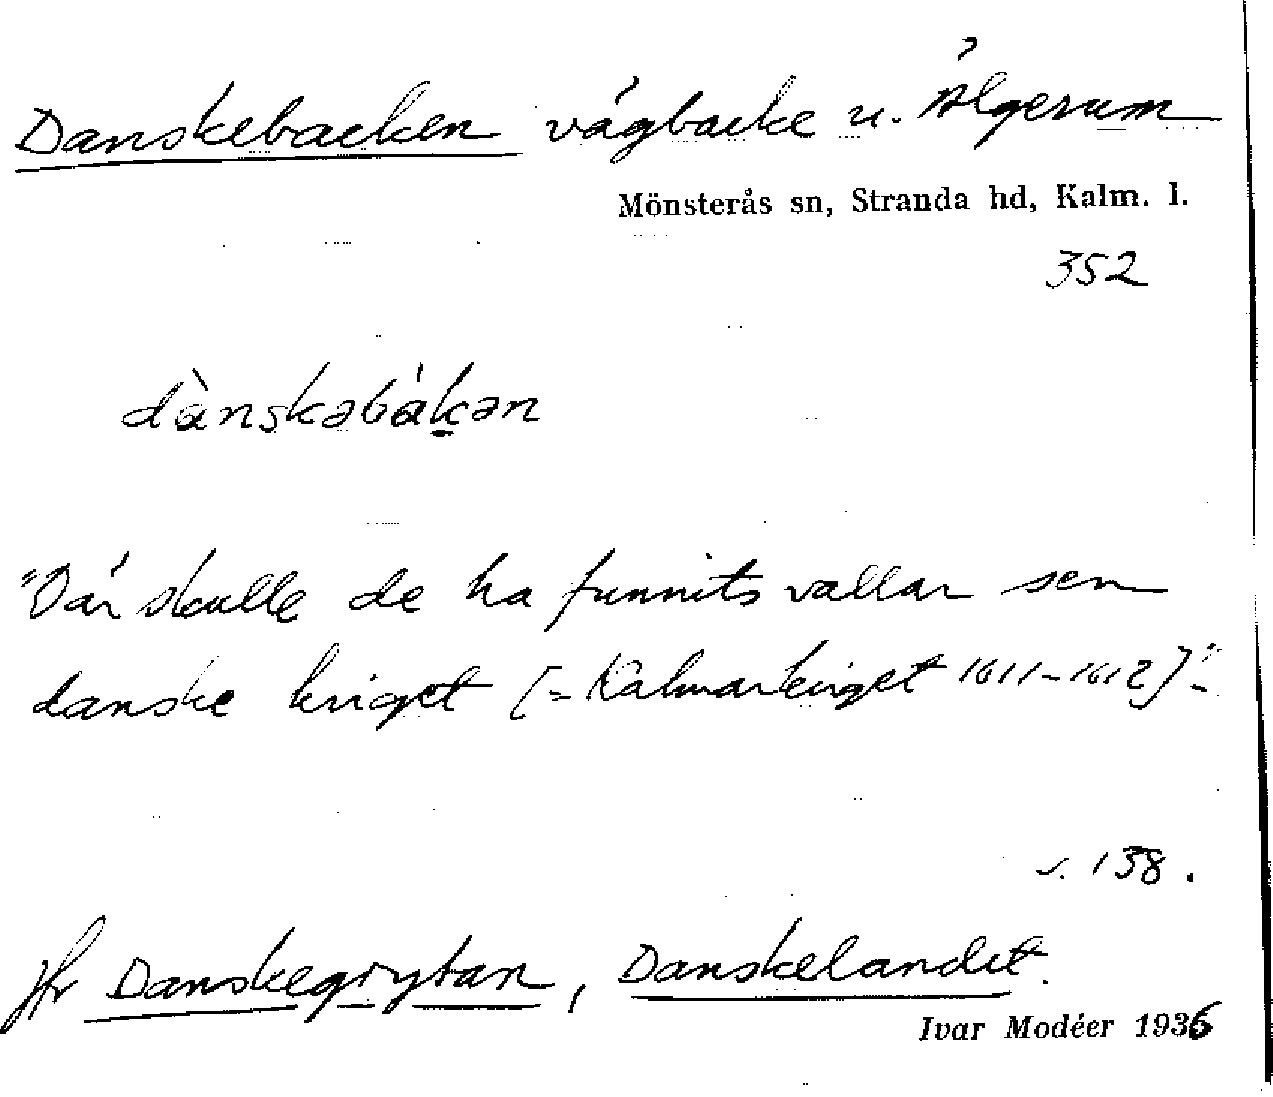 Danskebacken vägbacke u. Ålgerum
Mönsterås sn, Stranda hd, Kalm. l.
352
dànskəbákən
"Där skulle de ha funnits vallar sen
danske kriget [= Kalmarkriget 1611-1612]"-
s. 138.
jfr Danskegrytan, Danskelandet.
Ivar Modéer 1936